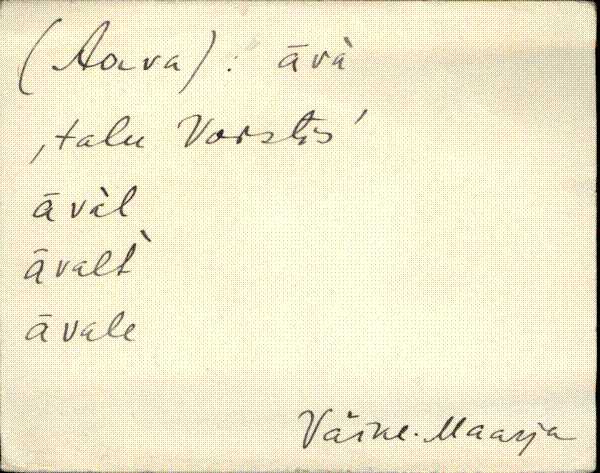 (Aava): āvà
‚talu Vorstis’
āvàl
āvalt̀
āvale
Väike-Maarja